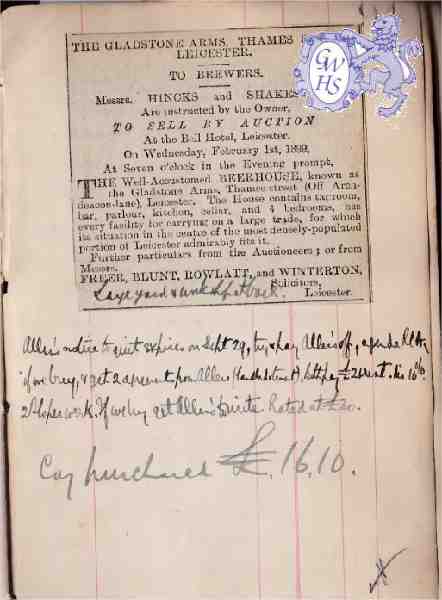 THE GLADSTONE ARMS, THAMES
LEICESTER.
TO BREWERS.
Messrs. HINCKS and SHAKES
Are instructed by the Owner,
TO SELL BY AUCTION
At the Bell Hotel, Leicester.
On Wednesday, February 1st, 1899,
At Seven o'clock in the Evening prompt,
THE Well-Accustomed BEERHOUSE, known as
the Gladstone Arms, Thames-street (Off Arch-
deacon-lane), Leicester. The House contains taproom,
bar, parlour, kitchen, cellar, and 4 bedrooms, has
every facility for carrying on a large trade, for which
its situation in the centre of the most densely-populated
portion of Leicester admirably fits it.
Further particulars from the Auctioneers; or from
Messrs.
FREER, BLUNT, ROWLATT, and WINTERTON,
Solicitors,
Leicester.
Large yard &
GWHS
Allen's notice to quit expires on Sept 29, try & pay Allen off
if we buy, & get
If we buy get Allen's Rated at £20.
Coy purchased £16.10.